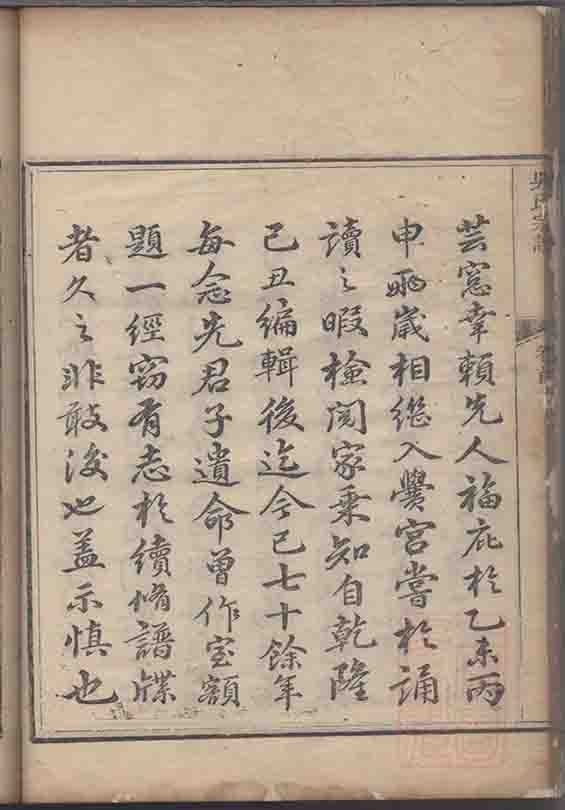 芸窓幸賴先人福庇於乙未丙
申兩歲相繼入黌宮嘗於誦
讀之暇檢閱家乘知自乾隆
己丑編輯後迄今已七十餘年
每念先君子遺命曾作室額
題一經窃有志於續脩譜牒
者久之非敢後也盖示慎也
氏宗譜
卷首